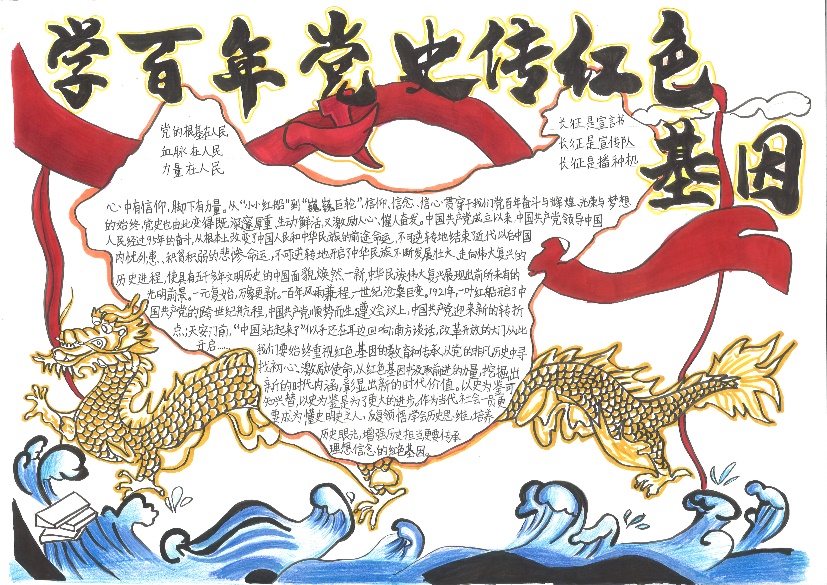 学百年党史传红色
基因
党的根基在人民
血脉在人民
力量在人民
长征是宣言书
长征是宣传队
长征是播种机
心中有信仰,脚下有力量。从“小小红船”到“巍巍巨轮”,信仰、信念、信心贯穿于我们党百年奋斗与辉煌、光荣与梦想
的始终,党史也由此变得既深邃厚重、生动鲜活,又激励人心、催人奋发。中国共产党成立以来,中国共产党领导中国
人民经过95年的奋斗,从根本上改变了中国人民和中华民族的前途命运,不可逆转地结束了近代以后中国
内忧外患、积贫积弱的悲惨命运,不可逆转地开启了中华民族不断发展壮大、走向伟大复兴的
历史进程,使具有五千多年文明历史的中国面貌焕然一新,中华民族伟大复兴展现出前所未有的
光明前景。一元复始,万象更新。一百年风雨兼程,一世纪沧桑巨变。1921年,一叶红船开启了中
国共产党的跨世纪航程,中国共产党顺势而生;遵义会议上,中国共产党迎来新的转折
点;天安门前,“中国站起来了”似乎还在耳边回响;南方谈话,改革开放的大门从此
开启……
我们要始终重视红色基因的教育和传承,从党的非凡历史中寻
找初心、激励使命,从红色基因中汲取前进的力量,挖掘出
新的时代内涵,彰显出新的时代价值。以史为鉴可
知兴替,以史为鉴是为了更大的进步,作为当代社会一员,更
要成为懂史明史之人,反复领悟,学会历史思维,培养
历史眼光,增强历史担当,更要传承
理想信念的红色基因。